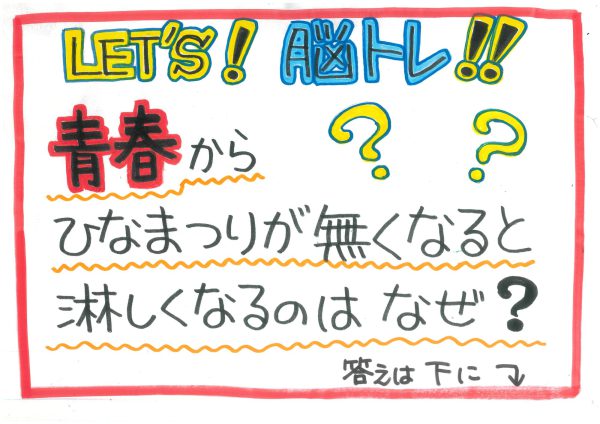 LET'S! 脳トレ!!
青春から ? ?
ひなまつりが無くなると
淋しくなるのは なぜ?
答えは 下に ↓